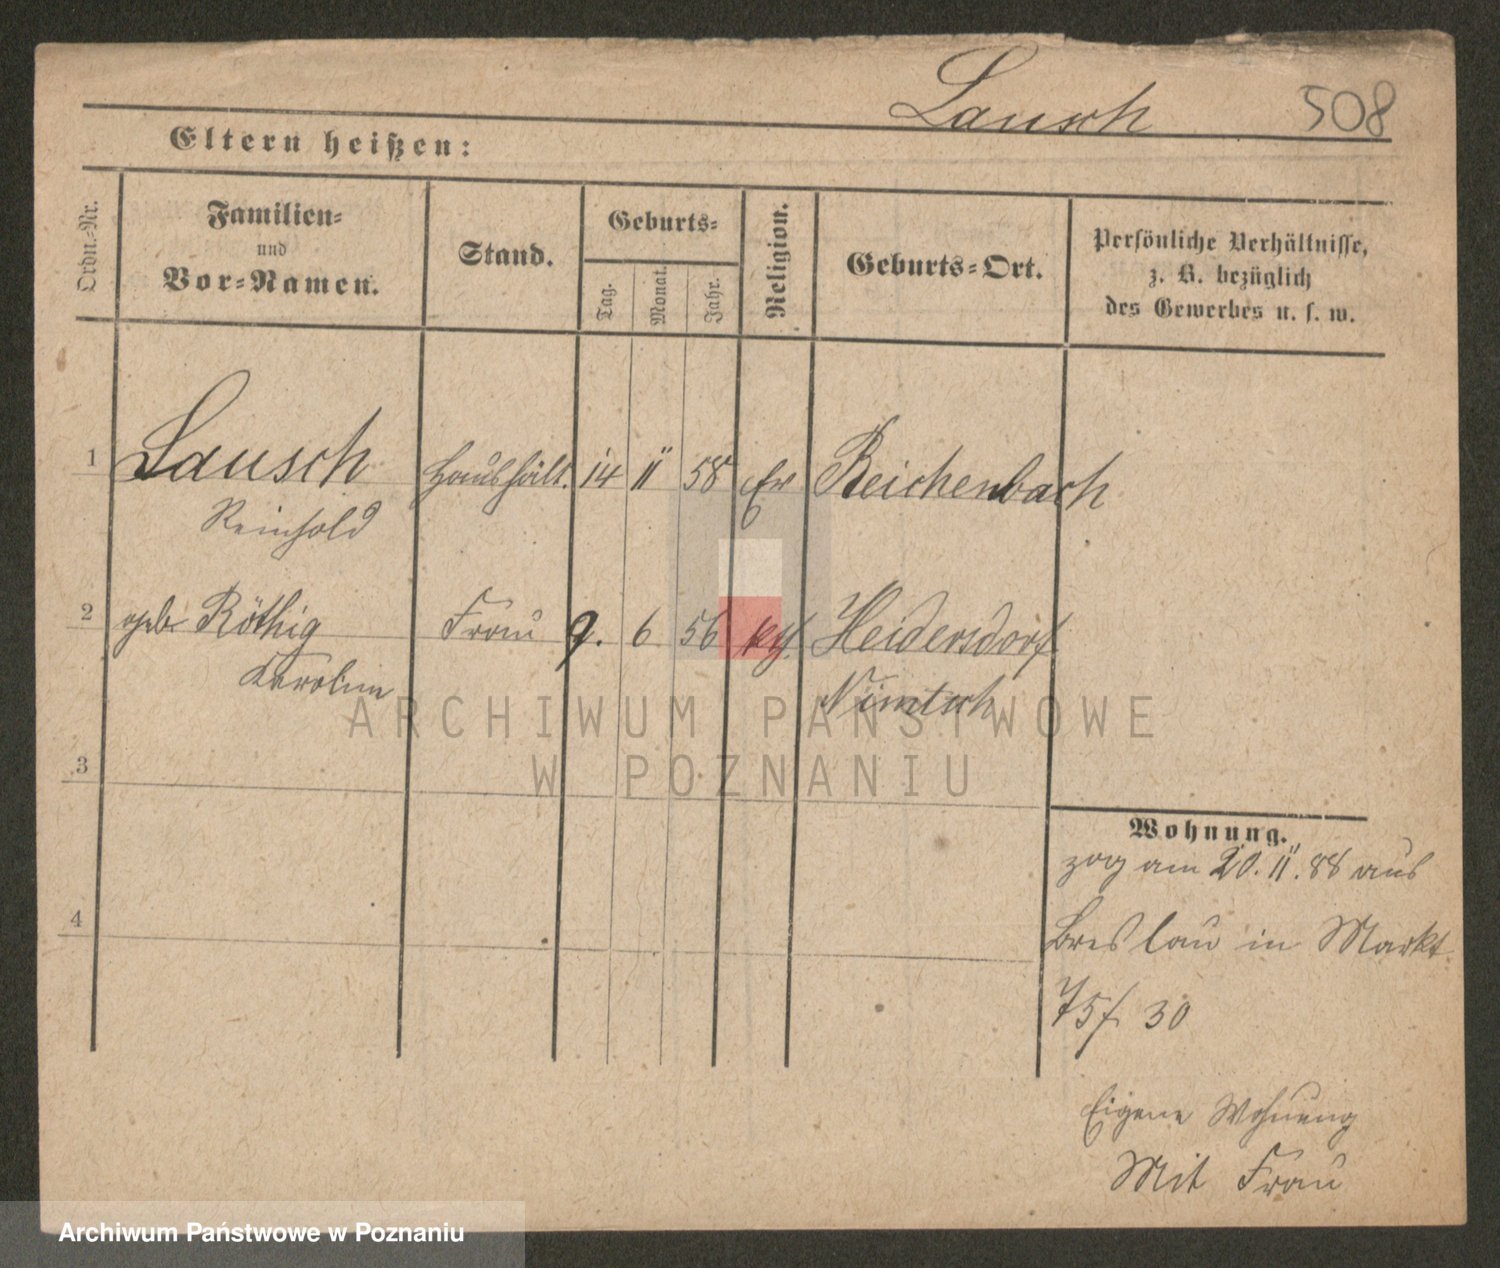 Lausch 508
Eltern heißen:
Ordn.-Nr.
Familien-
und
Vor-Namen.
Stand.
Geburts-
Tag.
Monat.
Jahr.
Religion.
Geburts-Ort.
Persönliche Verhältnisse,
z. B. bezüglich
des Gewerbes u. s. w.
1 Lausch Haushält. 14 11 58 Ev Reichenbach
Reinhold
2 geb. Röthig Frau 9. 6 56 kth. Heidersdorf
Karoline Nimtsch
ARCHIWUM PAŃSTWOWE
W POZNANIU
3
Wohnung.
zog am 20. 11. 88 aus
4
Breslau in Markt
75/ 30
Eigene Wohnung
Mit Frau
Archiwum Państwowe w Poznaniu